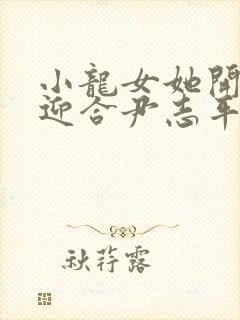 小龍女她開
迎合尹志平
秋荇露